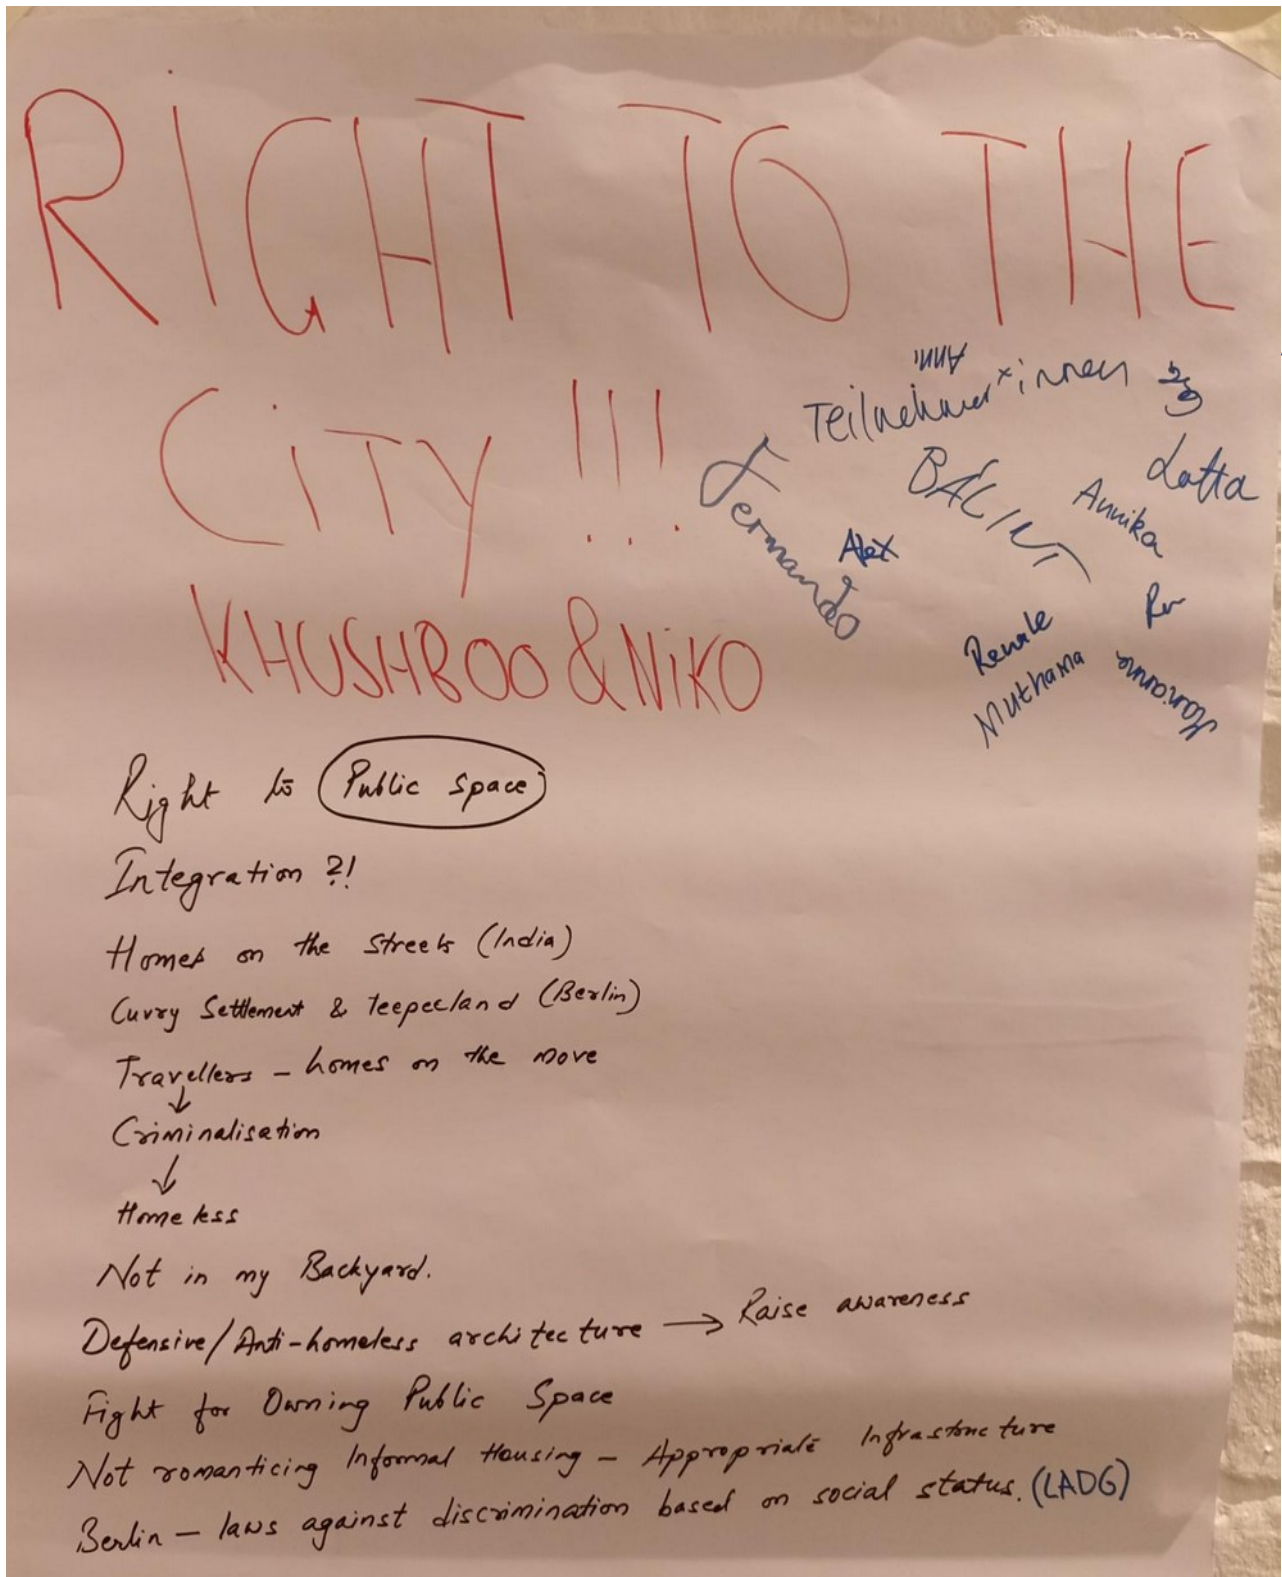 RIGHT TO THE
CITY !!!
KHUSHBOO & NIKO
Anni
Teilnehmer*innen
Fernando
BÁLINT
Lotta
Annika
Alex
Renate
Muthama
Marianne
Right to Public Space
Integration ?!
Homes on the streets (India)
Cuvry Settlement & teepeeland (Berlin)
Travellers – homes on the move
↓
Criminalisation
↓
Homeless
Not in my Backyard.
Defensive/Anti-homeless architecture → Raise awareness
Fight for Owning Public Space
Not romanticing Informal Housing – Appropriate Infrastructure
Berlin – laws against discrimination based on social status. (LADG)